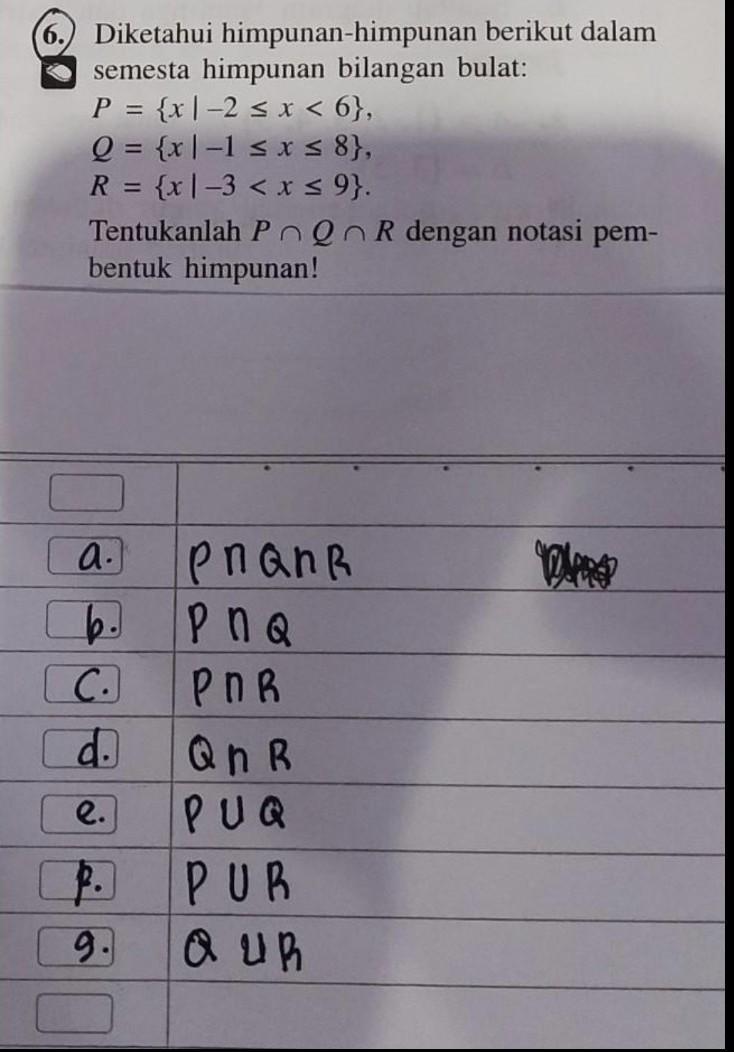 6. Diketahui himpunan-himpunan berikut dalam
semesta himpunan bilangan bulat:
P = {x | –2 ≤ x < 6},
Q = {x | –1 ≤ x ≤ 8},
R = {x | –3 < x ≤ 9}.
Tentukanlah P ∩ Q ∩ R dengan notasi pem-
bentuk himpunan!
a. P ∩ Q ∩ R
b. P ∩ Q
c. P ∩ R
d. Q ∩ R
e. P ∪ Q
f. P ∪ R
g. Q ∪ R